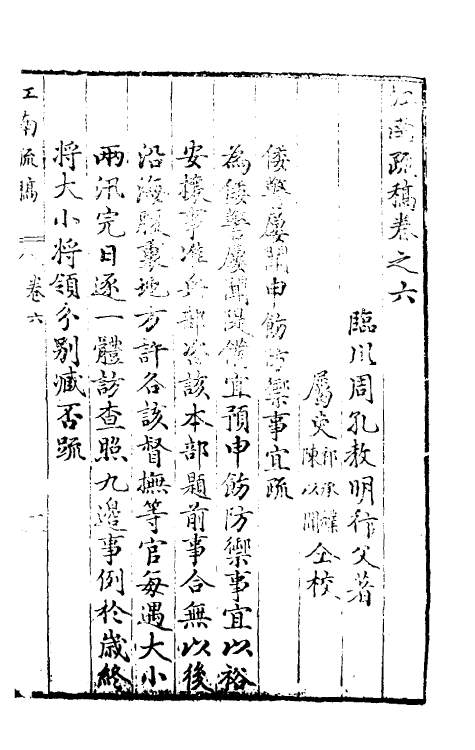 江南疏稿卷之六
臨川周孔教明行父著
屬吏
陳以聞
仝校
倭警屢聞申飭防禦事宜疏
為倭警屢聞隄備宜預申飭防禦事宜以裕
安攘事准兵部咨該本部題前事合無以後
沿海腹裏地方許各該督撫等官每遇大小
兩汛完日逐一體訪查照九邊事例於歲終
將大小將領分別臧否疏
江南疏稿
卷六
一